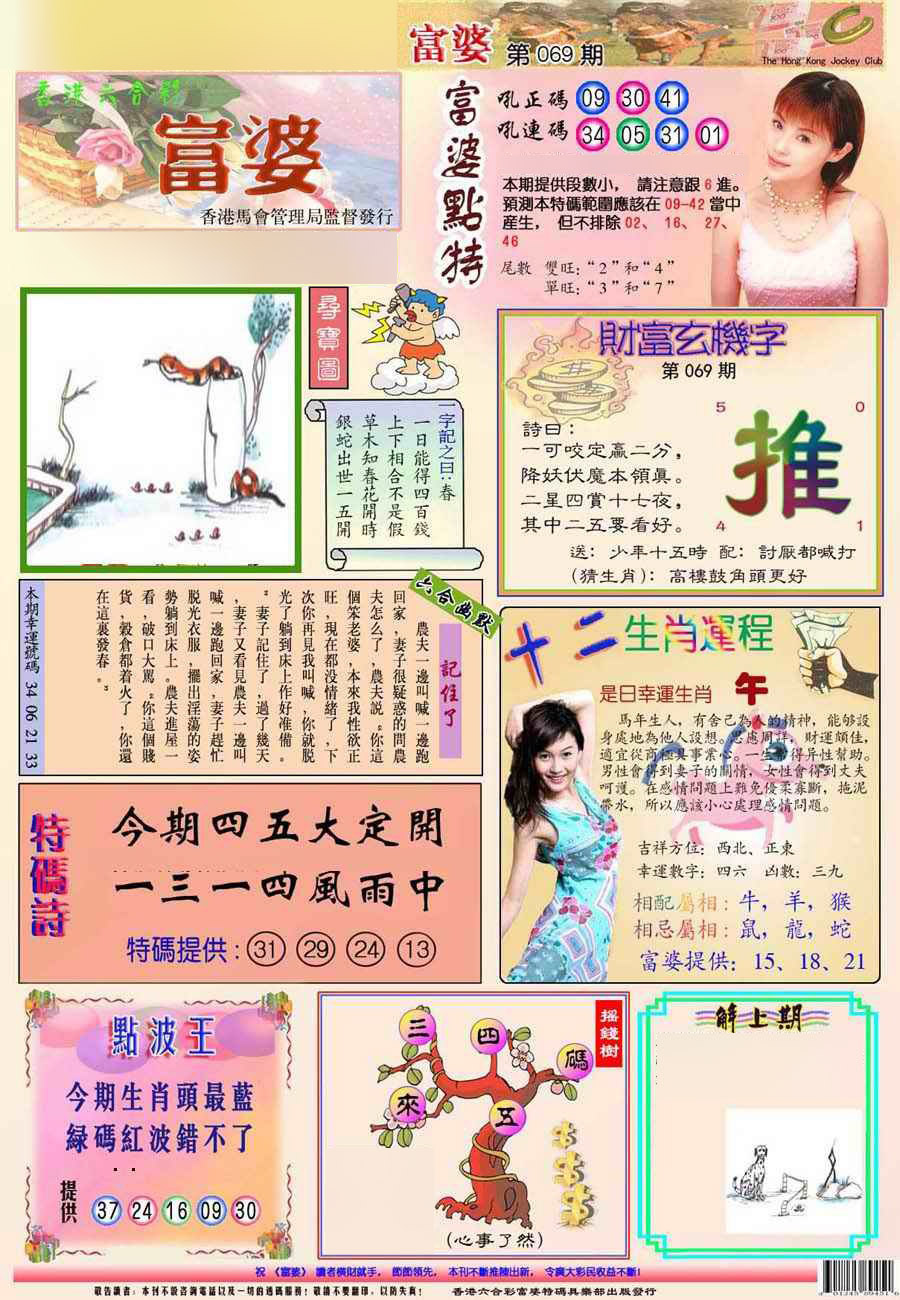 富婆 第069期
The Hong Kong Jockey Club
香港六合彩
富婆
香港馬會管理局監督發行
富婆點特
吼正碼 09 30 41
吼連碼 34 05 31 01
本期提供段數小， 請注意跟6進。
預測本特碼範圍應該在09-42當中
産生， 但不排除02、 16、 27、
46
尾數 雙旺：“2”和“4”
單旺：“3”和“7”
尋寶圖
一字記之曰：春
一日能得四百錢
上下相合不是假
草木知春花開時
銀蛇出世一五開
財富玄機字
第069期
5 0
推
4 1
詩曰：
一可咬定贏二分，
降妖伏魔本領眞。
二星四賞十七夜，
其中二五要看好。
送：少年十五時 配：討厭都喊打
（猜生肖）：高樓鼓角頭更好
六合幽默
記住了
農夫一邊叫喊一邊跑
回家，妻子很疑惑的問農
夫怎么了，農夫説。你這
個笨老婆，本來我性欲正
旺，現在都没情緒了，下
次你再見我叫喊，你就脱
光了躺到床上作好准備。
"妻子記住了，過了幾天
，妻子又看見農夫一邊叫
喊一邊跑回家，妻子趕忙
脱光衣服，擺出淫蕩的姿
勢躺到床上。農夫進屋一
看，破口大駡。"你這個賤
貨，穀倉都着火了，你還
在這裏發春。"
本期幸運號碼 34 06 21 33
十二生肖運程
是日幸運生肖 午
馬年生人，有舍己為人的精神，能够設
身處地為他人設想。思慮周詳，財運頗佳，
適宜從商極具事業心。一生常得异性幫助。
男性會得到妻子的關情，女性會得到丈夫
呵護。在感情問題上難免優柔寡斷，拖泥
帶水，所以應該小心處理感情問題。
吉祥方位：西北、正東
幸運數字：四六 凶數：三九
相配屬相：牛，羊，猴
相忌屬相：鼠，龍，蛇
富婆提供：15、18、21
特碼詩
今期四五大定開
一三一四風雨中
特碼提供：31 29 24 13
點波王
今期生肖頭最藍
緑碼紅波錯不了
提供 37 24 16 09 30
摇錢樹
三 四 碼
來 五
（心事了然）
解上期
祝 《富婆》 讀者横財就手， 節節領先， 本刊不斷推陳出新， 令廣大彩民收益不斷！
敬告讀者：本刊不設咨詢電話以及一切的透碼服務！敬請不要翻印，以防失真！ 香港六合彩富婆特碼具樂部出版發行